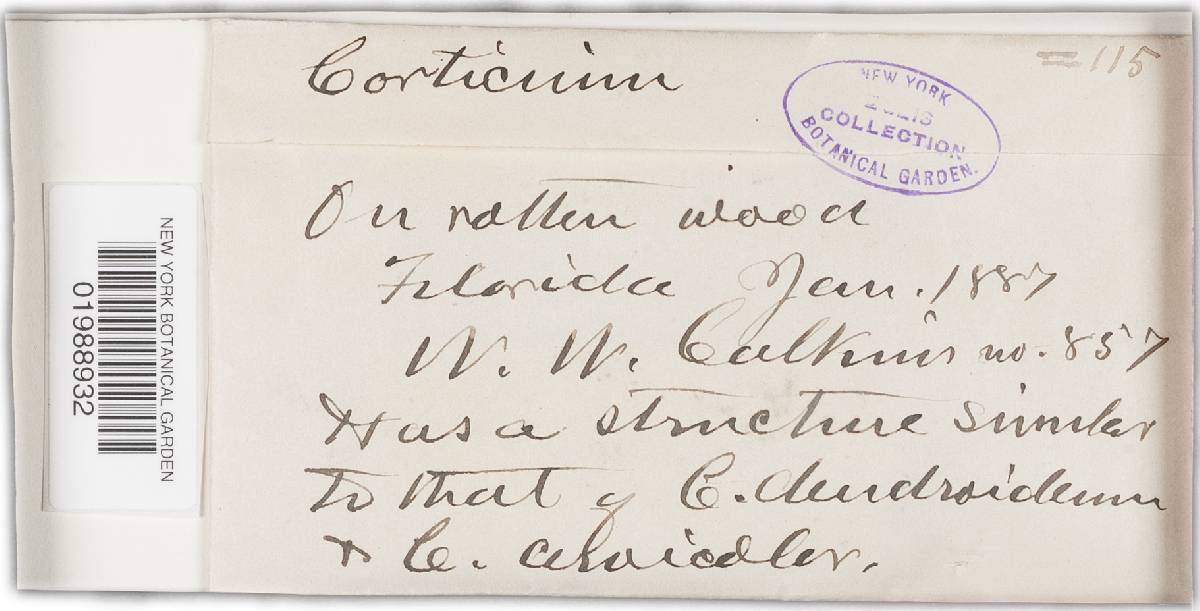 Corticium
= 115
NEW YORK
ELLIS
COLLECTION
BOTANICAL GARDEN.
On rotten wood
Florida Jan. 1887
W. W. Calkins no. 857
Has a structure similar
to that of C. dendroideum
& C.
NEW YORK BOTANICAL GARDEN
01988932